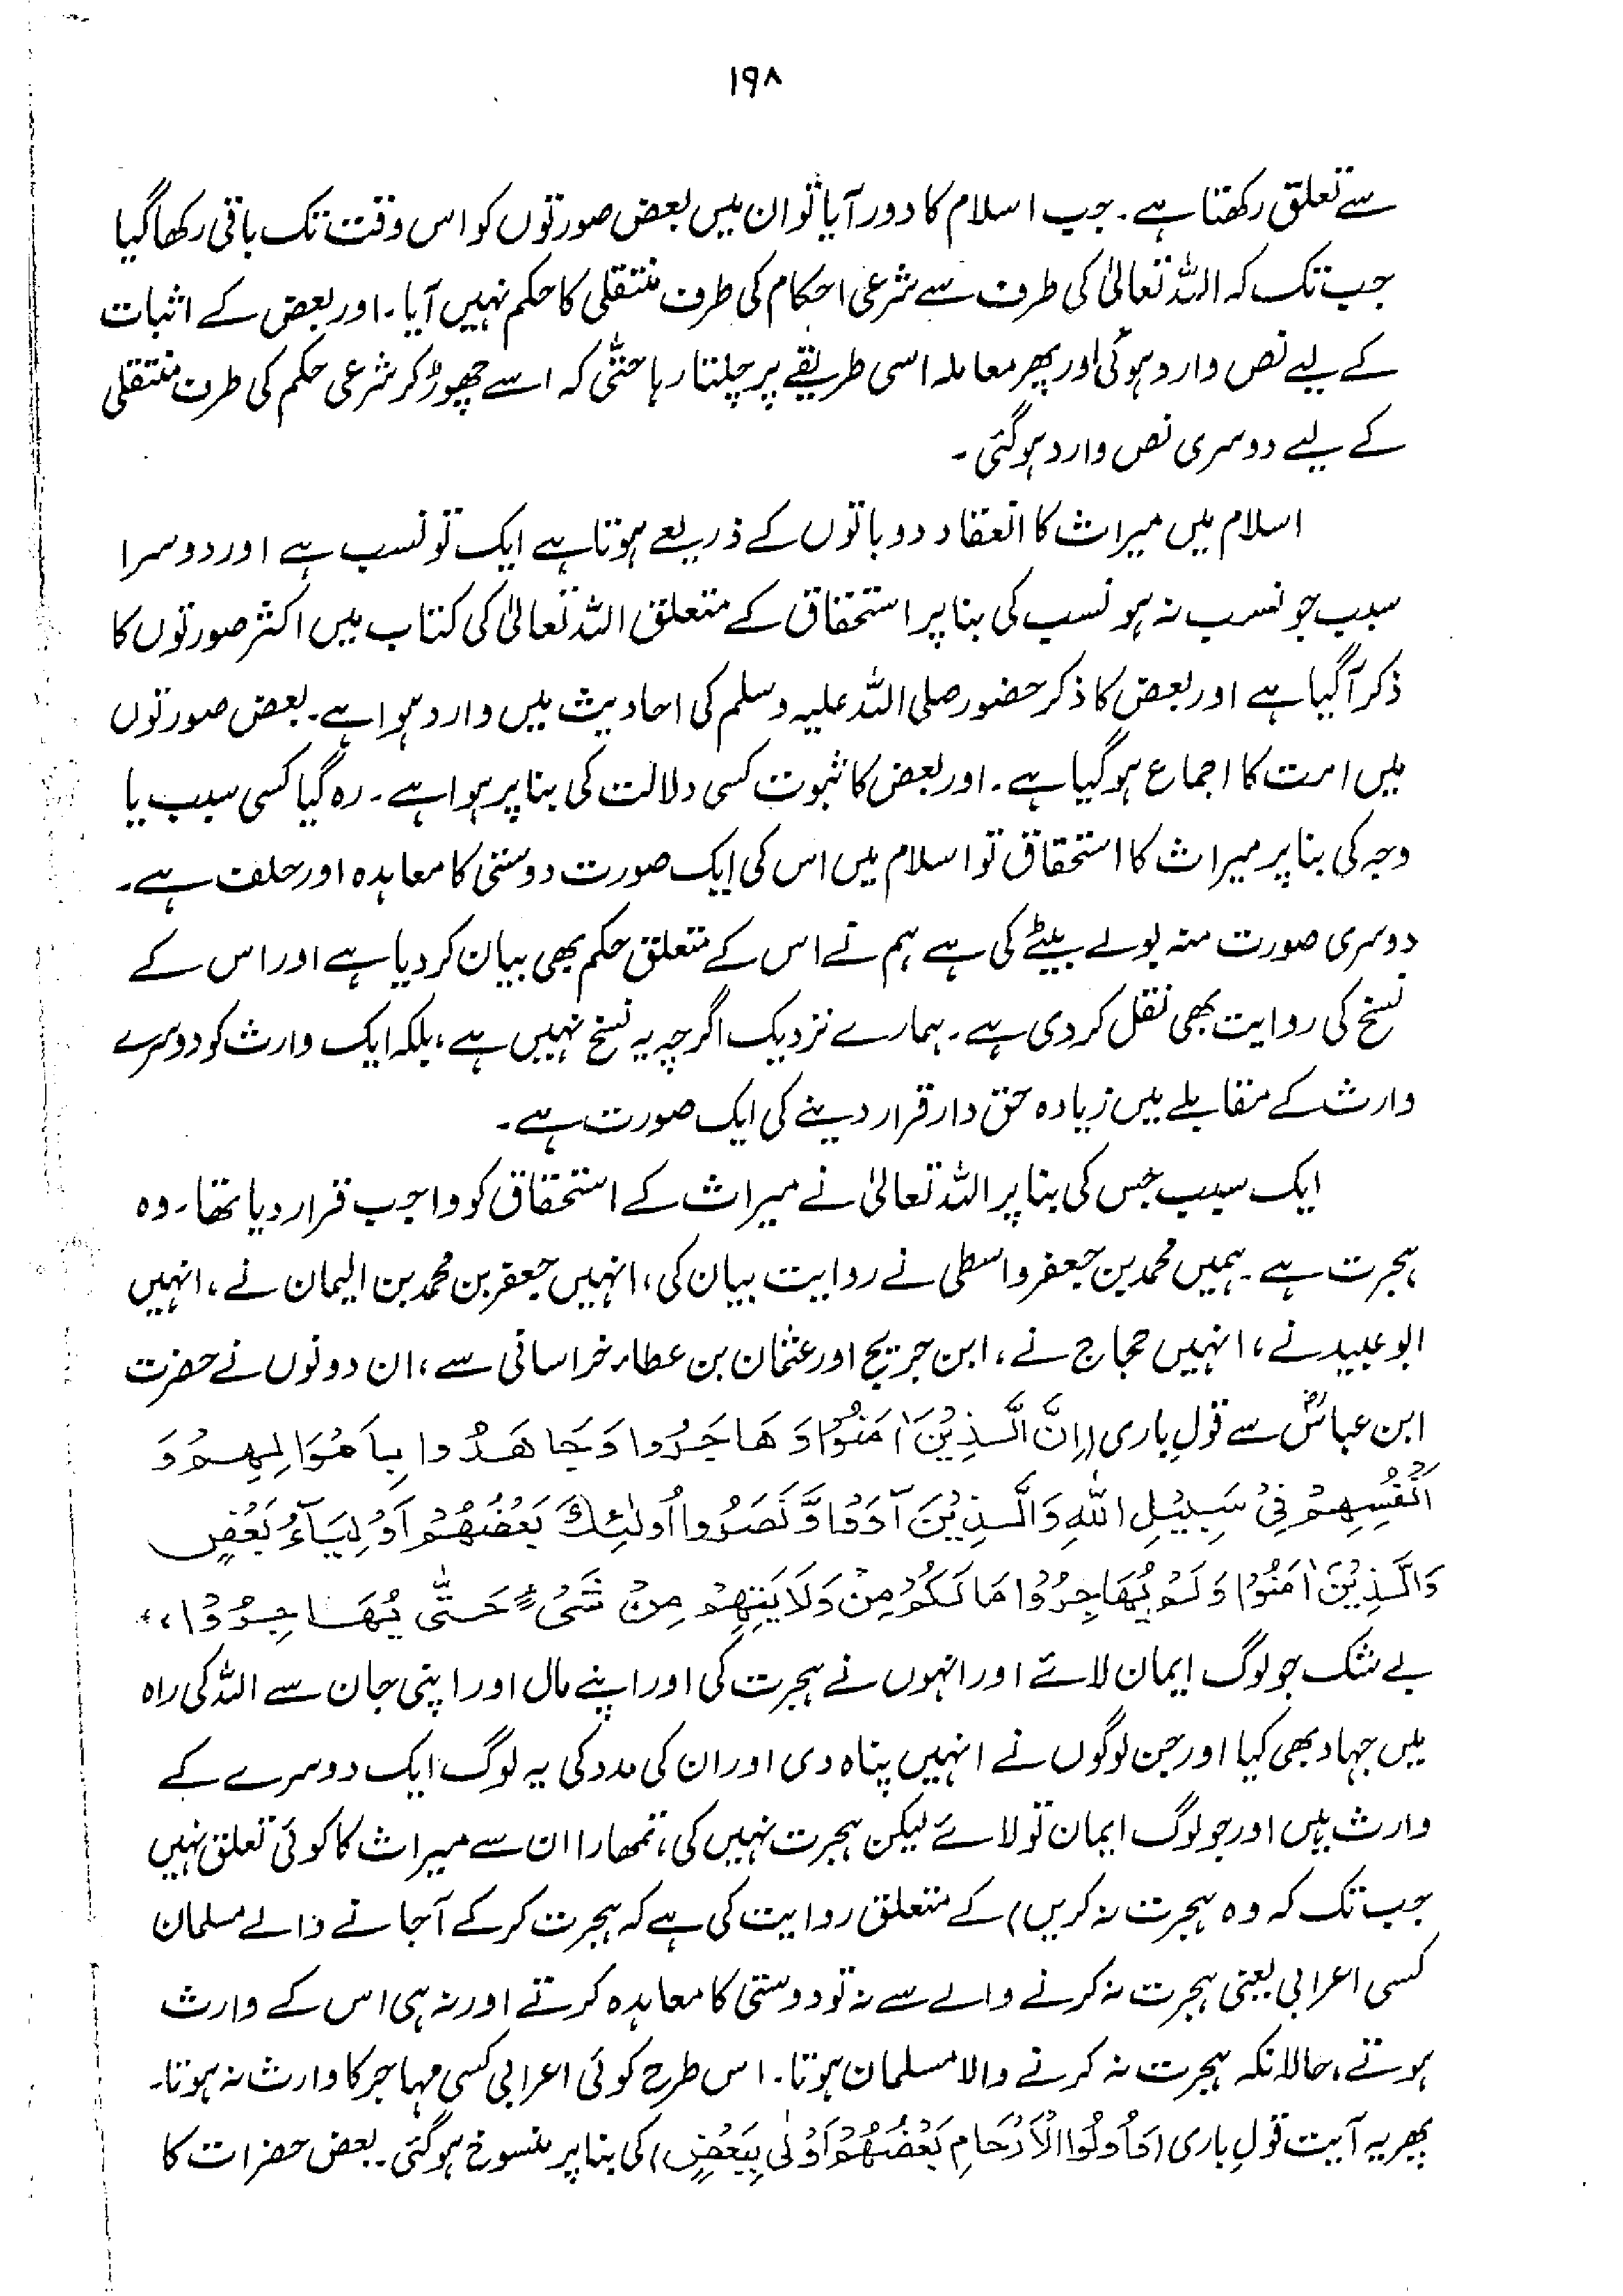 ۱۹۸
سے تعلق رکھتا ہے۔ جب اسلام کا دور آیا تو ان میں بعض صورتوں کو اس وقت تک باقی رکھا گیا
جب تک کہ اللہ تعالیٰ کی طرف سے شرعی احکام کی طرف منتقلی کا حکم نہیں آیا۔ اور بعض کے اثبات
کے لیے نص وارد ہوئی اور پھر معاملہ اسی طریقے پر چلتا رہا حتّٰی کہ اسے چھوڑ کر شرعی حکم کی طرف منتقلی
کے لیے دوسری نص وارد ہو گئی۔
اسلام میں میراث کا انعقاد دو باتوں کے ذریعے ہوتا ہے ایک تو نسب ہے اور دوسرا
سبب جو نسب نہ ہو نسب کی بنا پر استحقاق کے متعلق اللہ تعالیٰ کی کتاب میں اکثر صورتوں کا
ذکر آگیا ہے اور بعض کا ذکر حضور صلی اللہ علیہ وسلم کی احادیث میں وارد ہوا ہے۔ بعض صورتوں
میں امت کا اجماع ہو گیا ہے۔ اور بعض کا ثبوت کسی دلالت کی بنا پر ہوا ہے۔ رہ گیا کسی سبب یا
وجہ کی بنا پر میراث کا استحقاق تو اسلام میں اس کی ایک صورت دوستی کا معاہدہ اور حلف ہے۔
دوسری صورت منہ بولے بیٹے کی ہے ہم نے اس کے متعلق حکم بھی بیان کر دیا ہے اور اس کے
نسخ کی روایت بھی نقل کر دی ہے۔ ہمارے نزدیک اگرچہ یہ نسخ نہیں ہے، بلکہ ایک وارث کو دوسرے
وارث کے مقابلے میں زیادہ حق دار قرار دینے کی ایک صورت ہے۔
ایک سبب جس کی بنا پر اللہ تعالیٰ نے میراث کے استحقاق کو واجب قرار دیا تھا۔ وہ
ہجرت ہے۔ ہمیں محمد بن جعفر واسطی نے روایت بیان کی، انہیں جعفر بن محمد بن الیمان نے، انہیں
ابوعبید نے، انہیں حجاج نے، ابن جریج اور عثمان بن عطاء خراسانی سے، ان دونوں نے حضرت
ابن عباسؓ سے قولِ باری (اِنَّ الَّذِیْنَ اٰمَنُوْا وَھَاجَرُوا وَجَاھَدُوا بِاَمْوَالِھِمْ وَ
اَنْفُسِھِمْ فِیْ سَبِیْلِ اللّٰهِ وَالَّذِیْنَ آوَوْا وَّنَصَرُوا اُولٰئِكَ بَعْضُھُمْ اَوْلِیَآءُ بَعْضٍ
وَالَّذِیْنَ اٰمَنُوْا وَلَمْ یُھَاجِرُوْا مَا لَکُمْ مِنْ وَلَایَتِھِمْ مِنْ شَیْءٍ حَتّٰی یُھَاجِرُوْا،،
بے شک جو لوگ ایمان لائے اور انہوں نے ہجرت کی اور اپنے مال اور اپنی جان سے اللہ کی راہ
میں جہاد بھی کیا اور جن لوگوں نے انہیں پناہ دی اور ان کی مدد کی یہ لوگ ایک دوسرے کے
وارث ہیں اور جو لوگ ایمان تو لائے لیکن ہجرت نہیں کی، تمھارا ان سے میراث کا کوئی تعلق نہیں
جب تک کہ وہ ہجرت نہ کریں) کے متعلق روایت کی ہے کہ ہجرت کر کے آجانے والے مسلمان
کسی اعرابی یعنی ہجرت نہ کرنے والے سے نہ تو دوستی کا معاہدہ کرتے اور نہ ہی اس کے وارث
ہوتے، حالانکہ ہجرت نہ کرنے والا مسلمان ہوتا۔ اس طرح کوئی اعرابی کسی مہاجر کا وارث نہ ہوتا۔
پھر یہ آیت قولِ باری (وَاُولُوا الْاَرْحَامِ بَعْضُھُمْ اَوْلٰی بِبَعْضٍ) کی بنا پر منسوخ ہو گئی۔ بعض حضرات کا